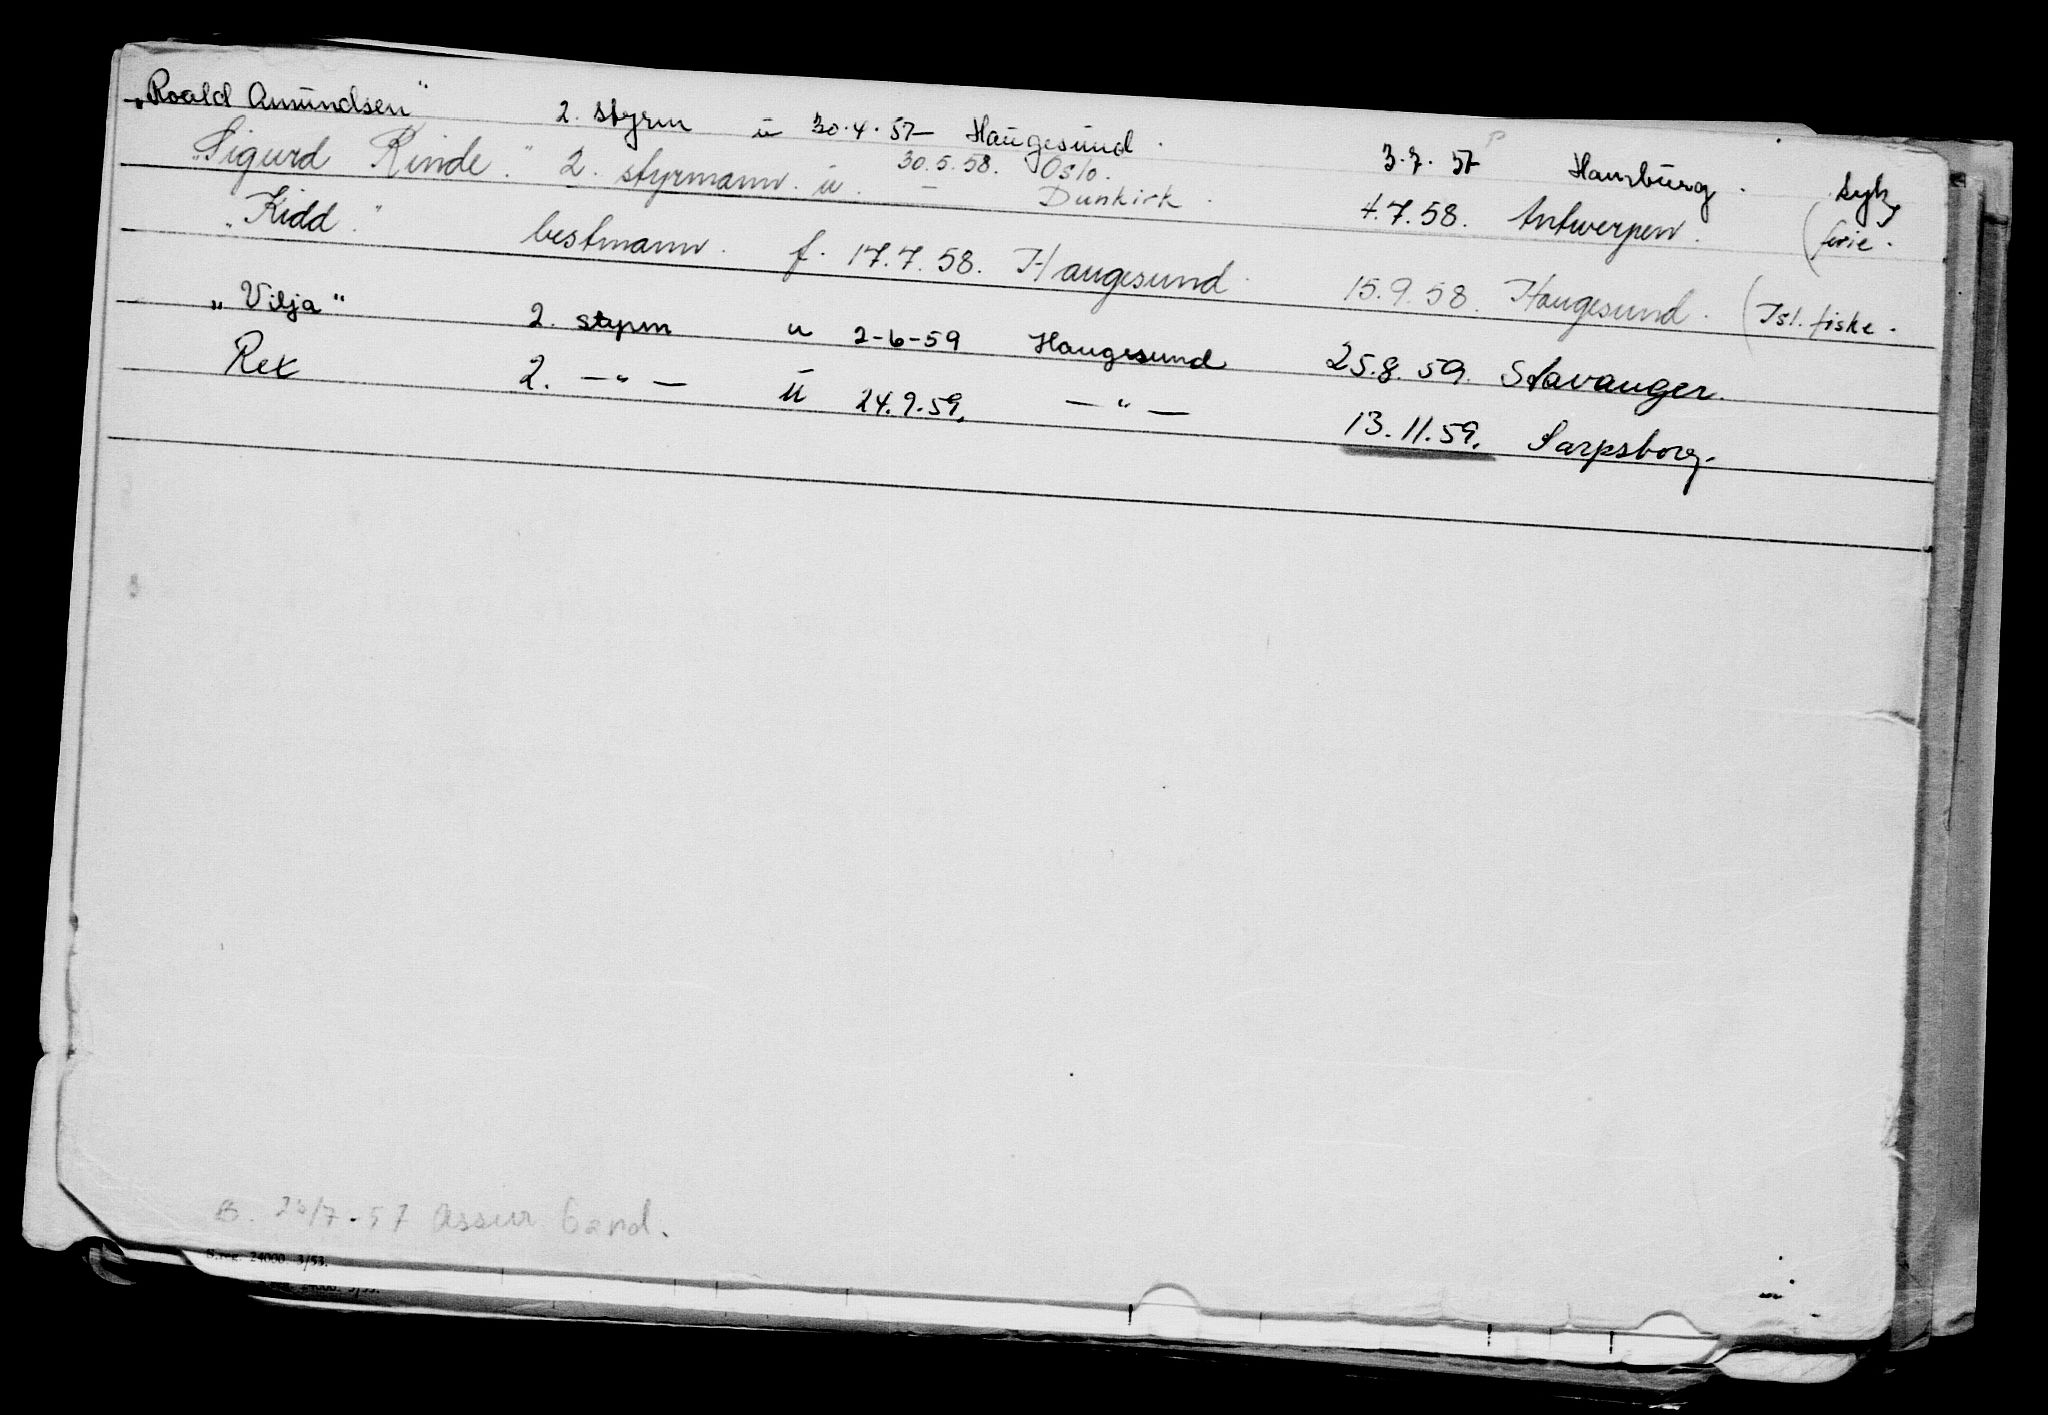 "Roald Amundsen" 2. styrm u 30.4.57 – Haugesund. 3.7.57 Hamburg. syk
"Sigurd Rinde." 2. styrmann. u. 30.5.58. Oslo. – Dunkirk. 4.7.58. Antwerpen. (ferie.
"Kidd." bestmann. f. 17.7.58. Haugesund. 15.9.58. Haugesund. (Isl. fiske.
"Vilja" 2. styrm u 2-6-59 Haugesund 25.8.59. Stavanger.
Rex 2. —"— u 24.9.59. —"— 13.11.59. Sarpsborg.
B. 26/7-57 Assur Gand.
S.reg. 24000 3/53.